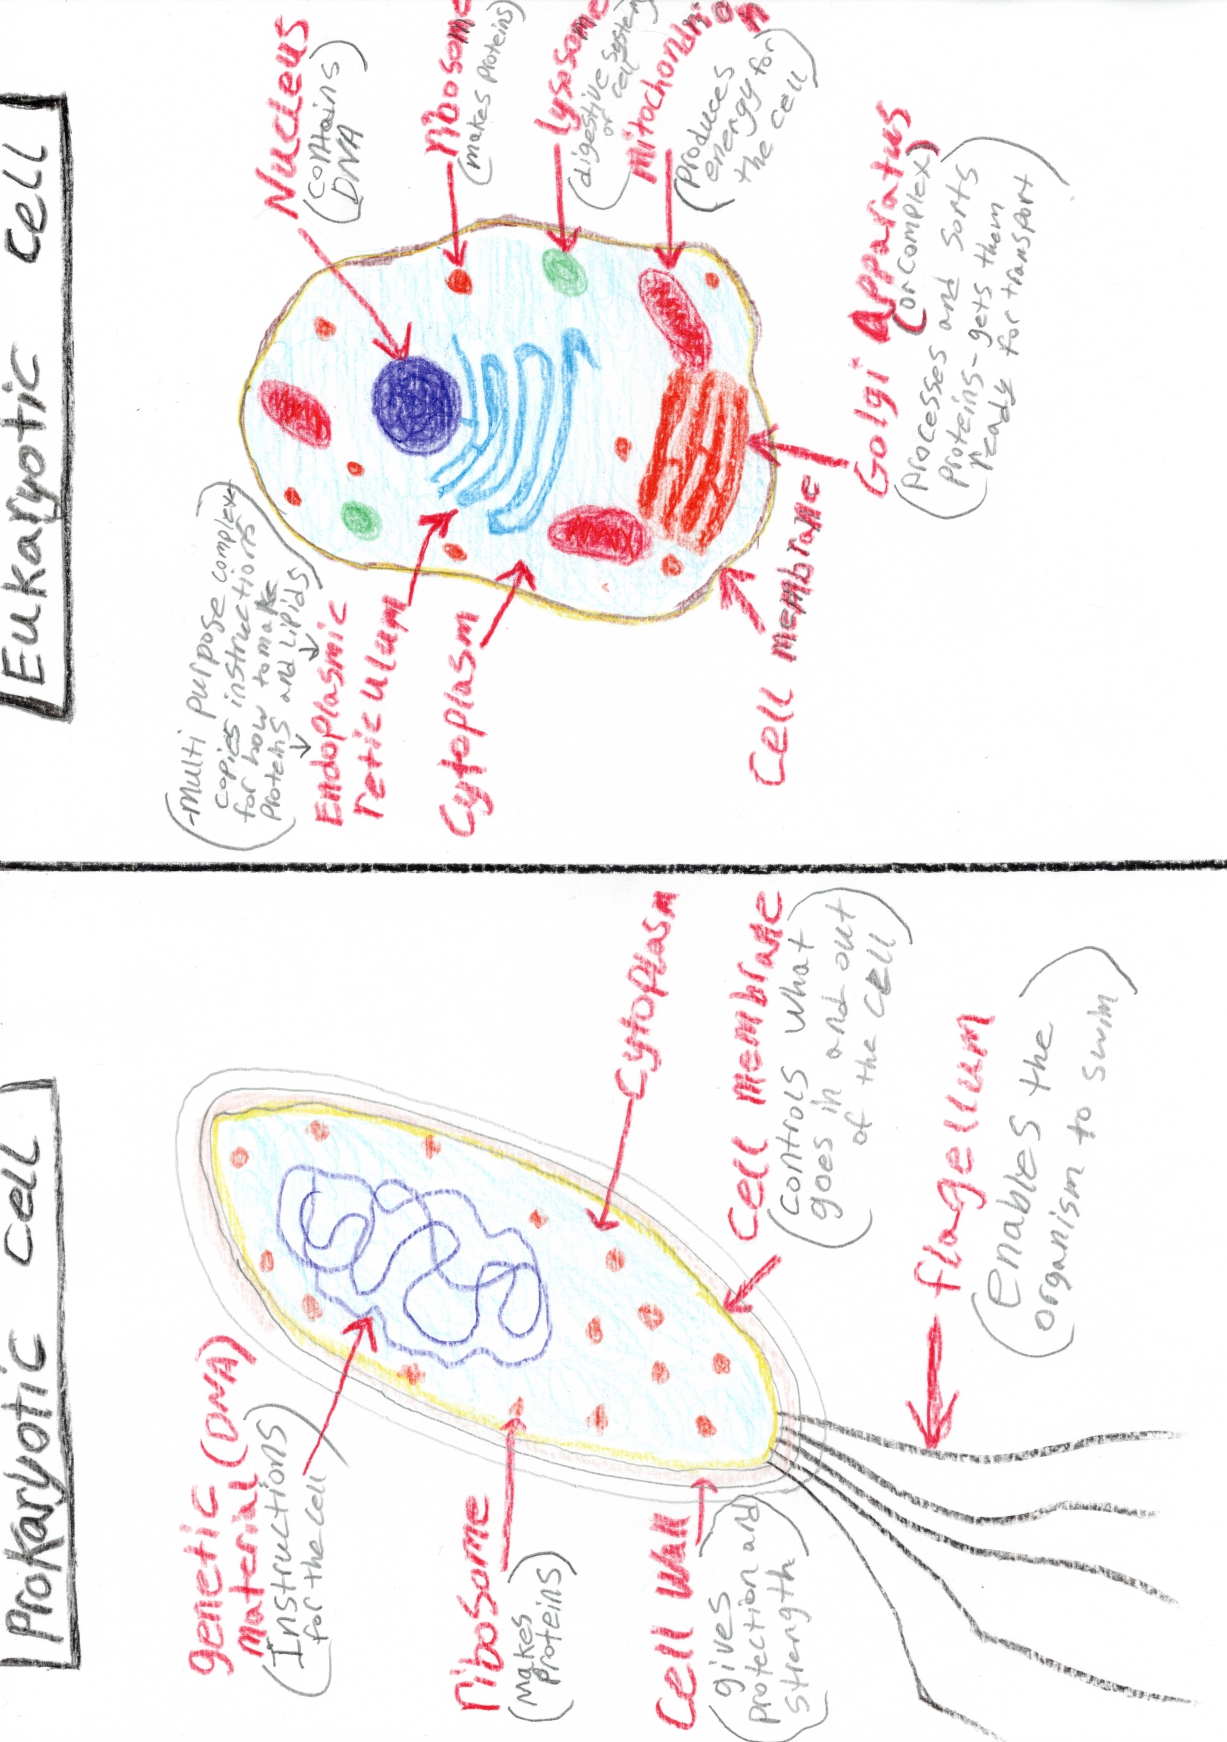 Prokaryotic Cell
genetic (DNA)
Material
(Instructions
for the cell)
ribosome
(Makes
Proteins)
Cell Wall
(gives
protection and
strength)
Cytoplasm
Cell Membrane
(controls what
goes in and out
of the cell)
flagellum
(enables the
organism to swim)
Eukaryotic Cell
(-Multi purpose complex,
copies instructions
for how to make
Proteins and Lipids)
Endoplasmic
reticulum
Cytoplasm
Cell Membrane
Nucleus
(contains
DNA)
ribosome
(makes proteins)
Lysosome
(digestive system
of cell)
Mitochondrion
(Produces
energy for
the cell)
Golgi Apparatus
(or complex)
(Processes and sorts
Proteins - gets them
ready for transport)